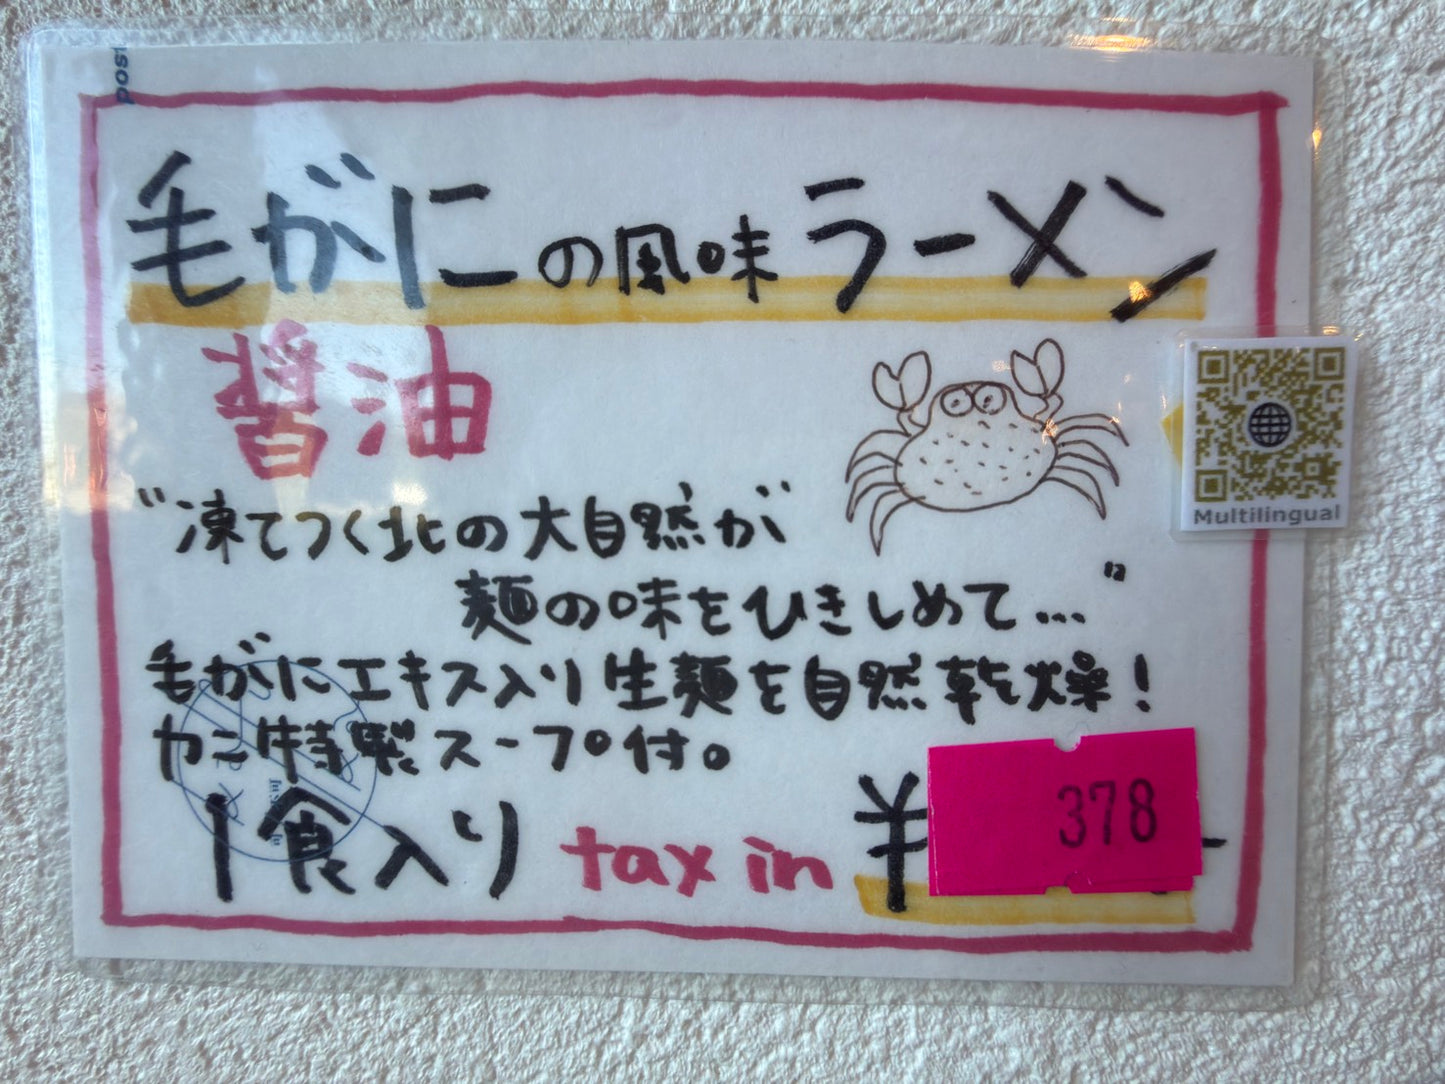 post
毛がにの風味ラーメン
醤油
Multilingual
"凍てつく北の大自然が
麺の味をひきしめて..."
毛がにエキス入り生麺を自然乾燥!
カニ特製スープ付。
1食入り tax in ¥378